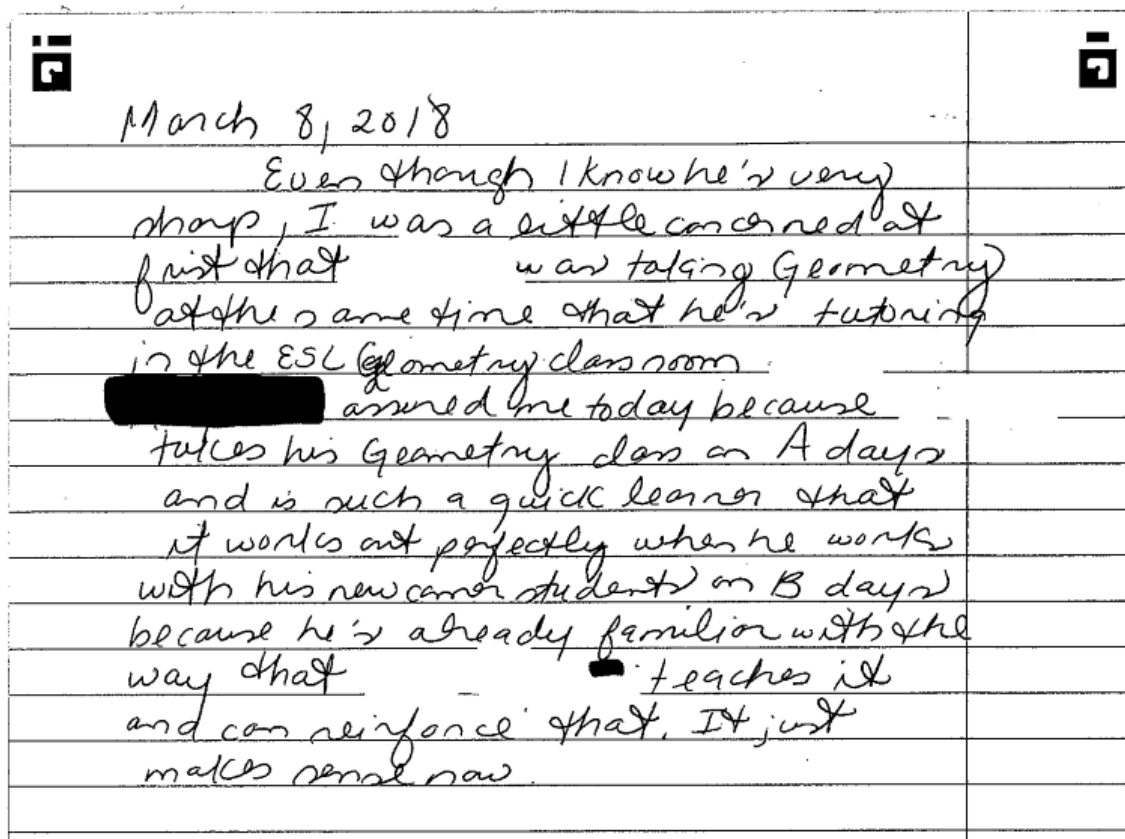 March 8, 2018
Even though I know he's very
sharp, I was a little concerned at
first that was taking Geometry
at the same time that he's tutoring
in the ESL Geometry classroom
assured me today because
takes his Geometry class on A days
and is such a quick learner that
it works out perfectly when he works
with his newcomer students on B days
because he's already familiar with the
way that teaches it
and can reinforce that. It just
makes sense now.